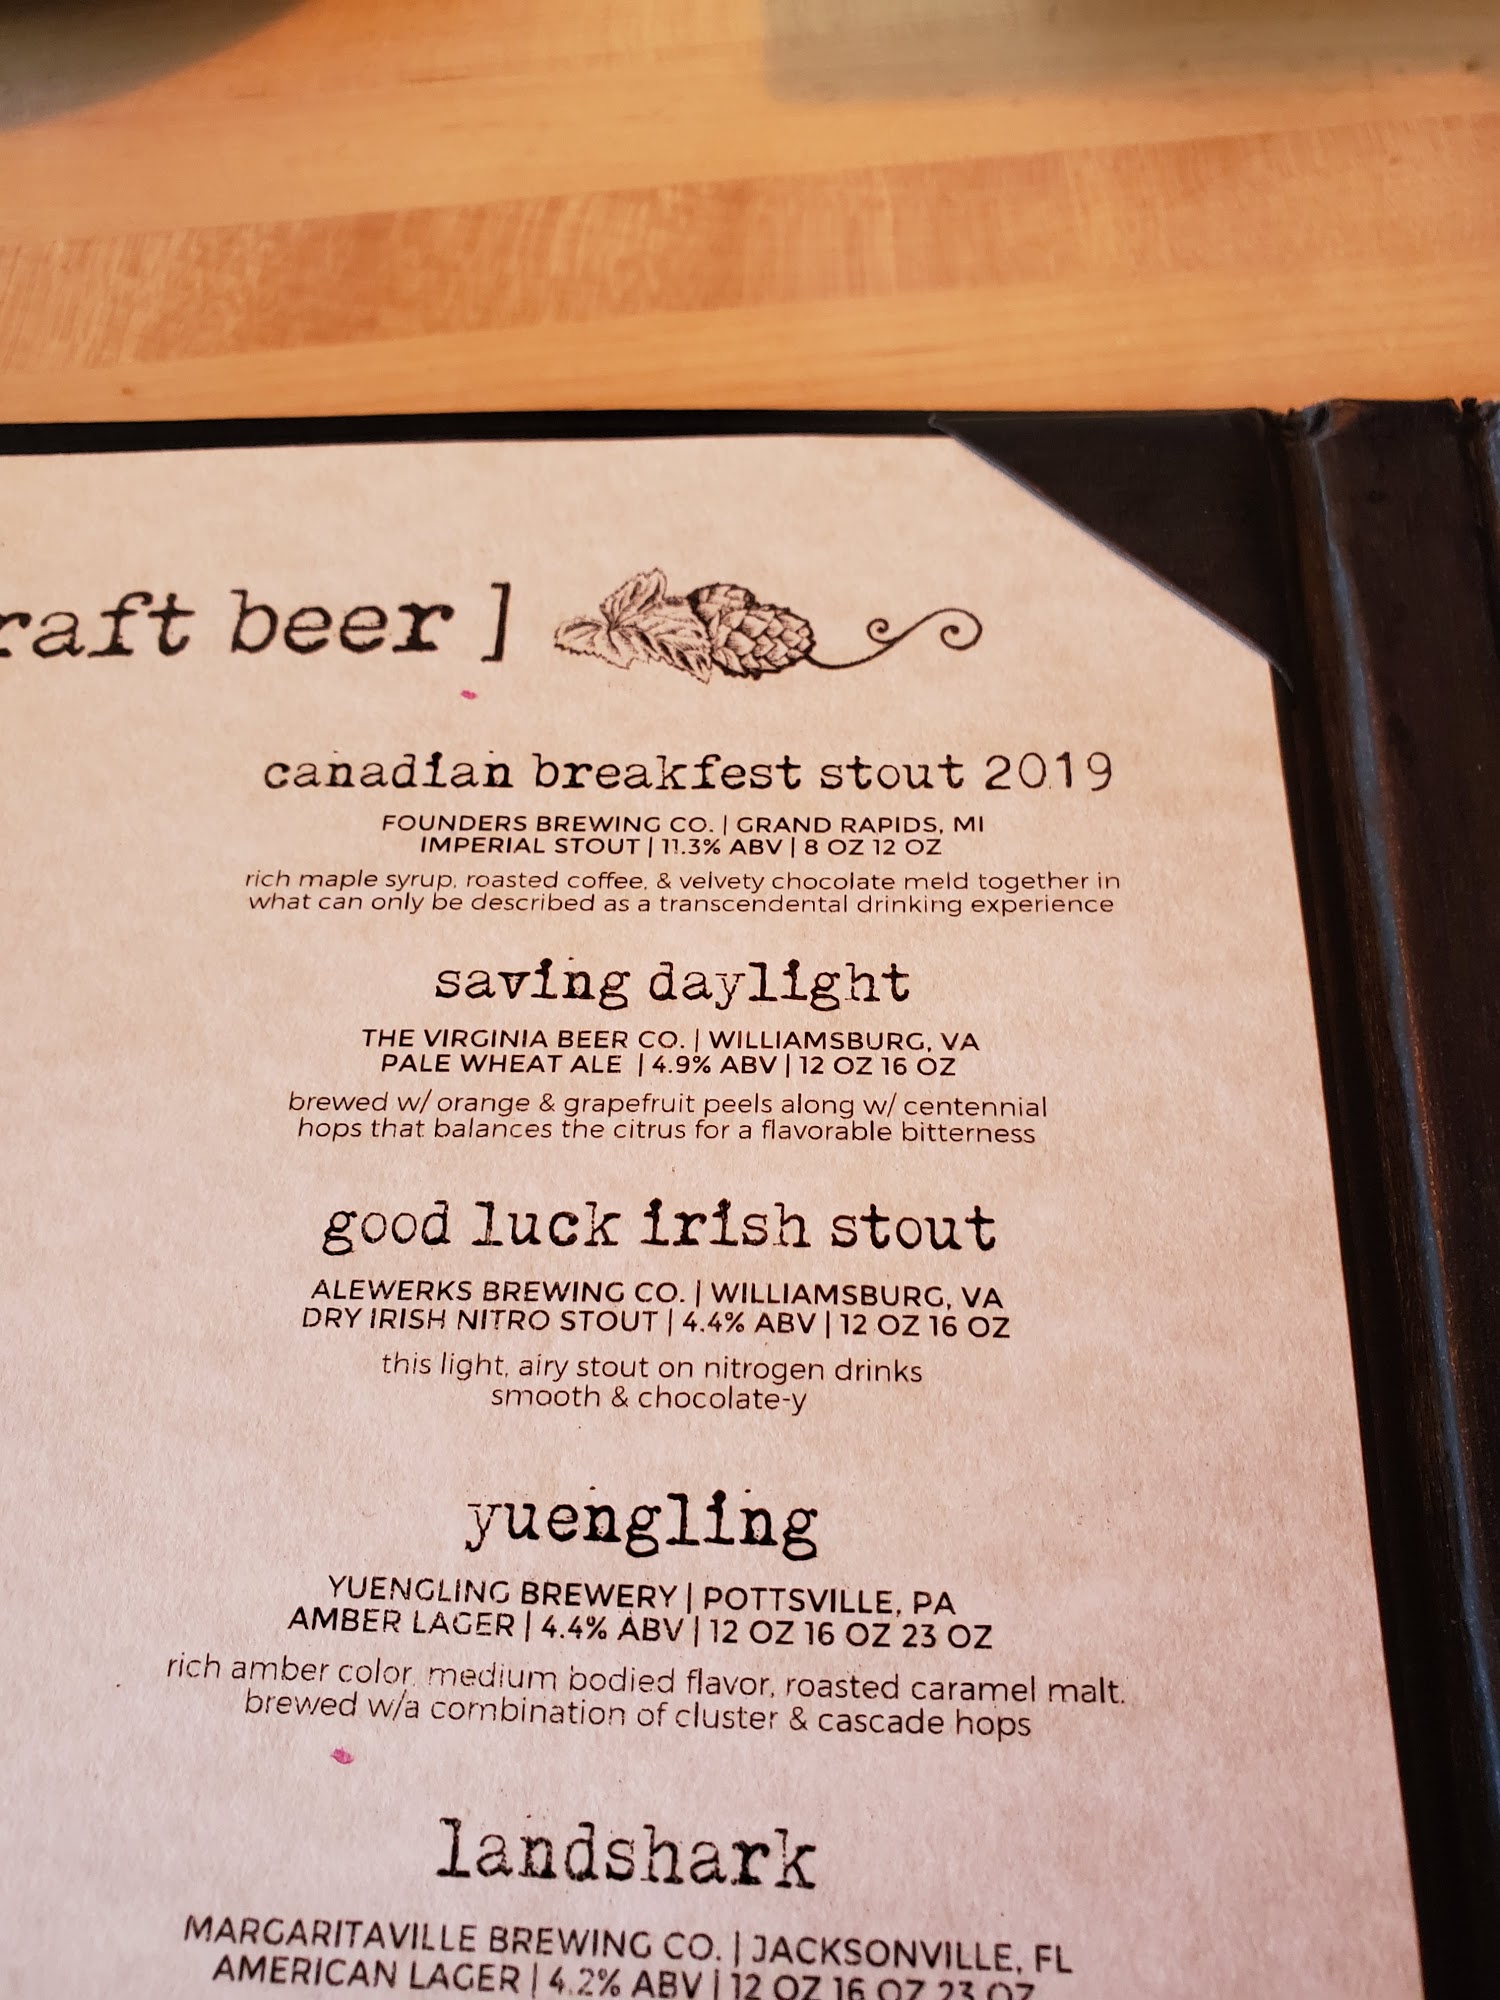 raft beer ]
canadian breakfest stout 2019
FOUNDERS BREWING CO. | GRAND RAPIDS, MI
IMPERIAL STOUT | 11.3% ABV | 8 OZ 12 OZ
rich maple syrup, roasted coffee, & velvety chocolate meld together in
what can only be described as a transcendental drinking experience
saving daylight
THE VIRGINIA BEER CO. | WILLIAMSBURG, VA
PALE WHEAT ALE | 4.9% ABV | 12 OZ 16 OZ
brewed w/ orange & grapefruit peels along w/ centennial
hops that balances the citrus for a flavorable bitterness
good luck irish stout
ALEWERKS BREWING CO. | WILLIAMSBURG, VA
DRY IRISH NITRO STOUT | 4.4% ABV | 12 OZ 16 OZ
this light, airy stout on nitrogen drinks
smooth & chocolate-y
yuengling
YUENGLING BREWERY | POTTSVILLE, PA
AMBER LAGER | 4.4% ABV | 12 OZ 16 OZ 23 OZ
rich amber color, medium bodied flavor, roasted caramel malt.
brewed w/a combination of cluster & cascade hops
landshark
MARGARITAVILLE BREWING CO. | JACKSONVILLE, FL
AMERICAN LAGER | 4.2% ABV | 12 OZ 16 OZ 23 OZ